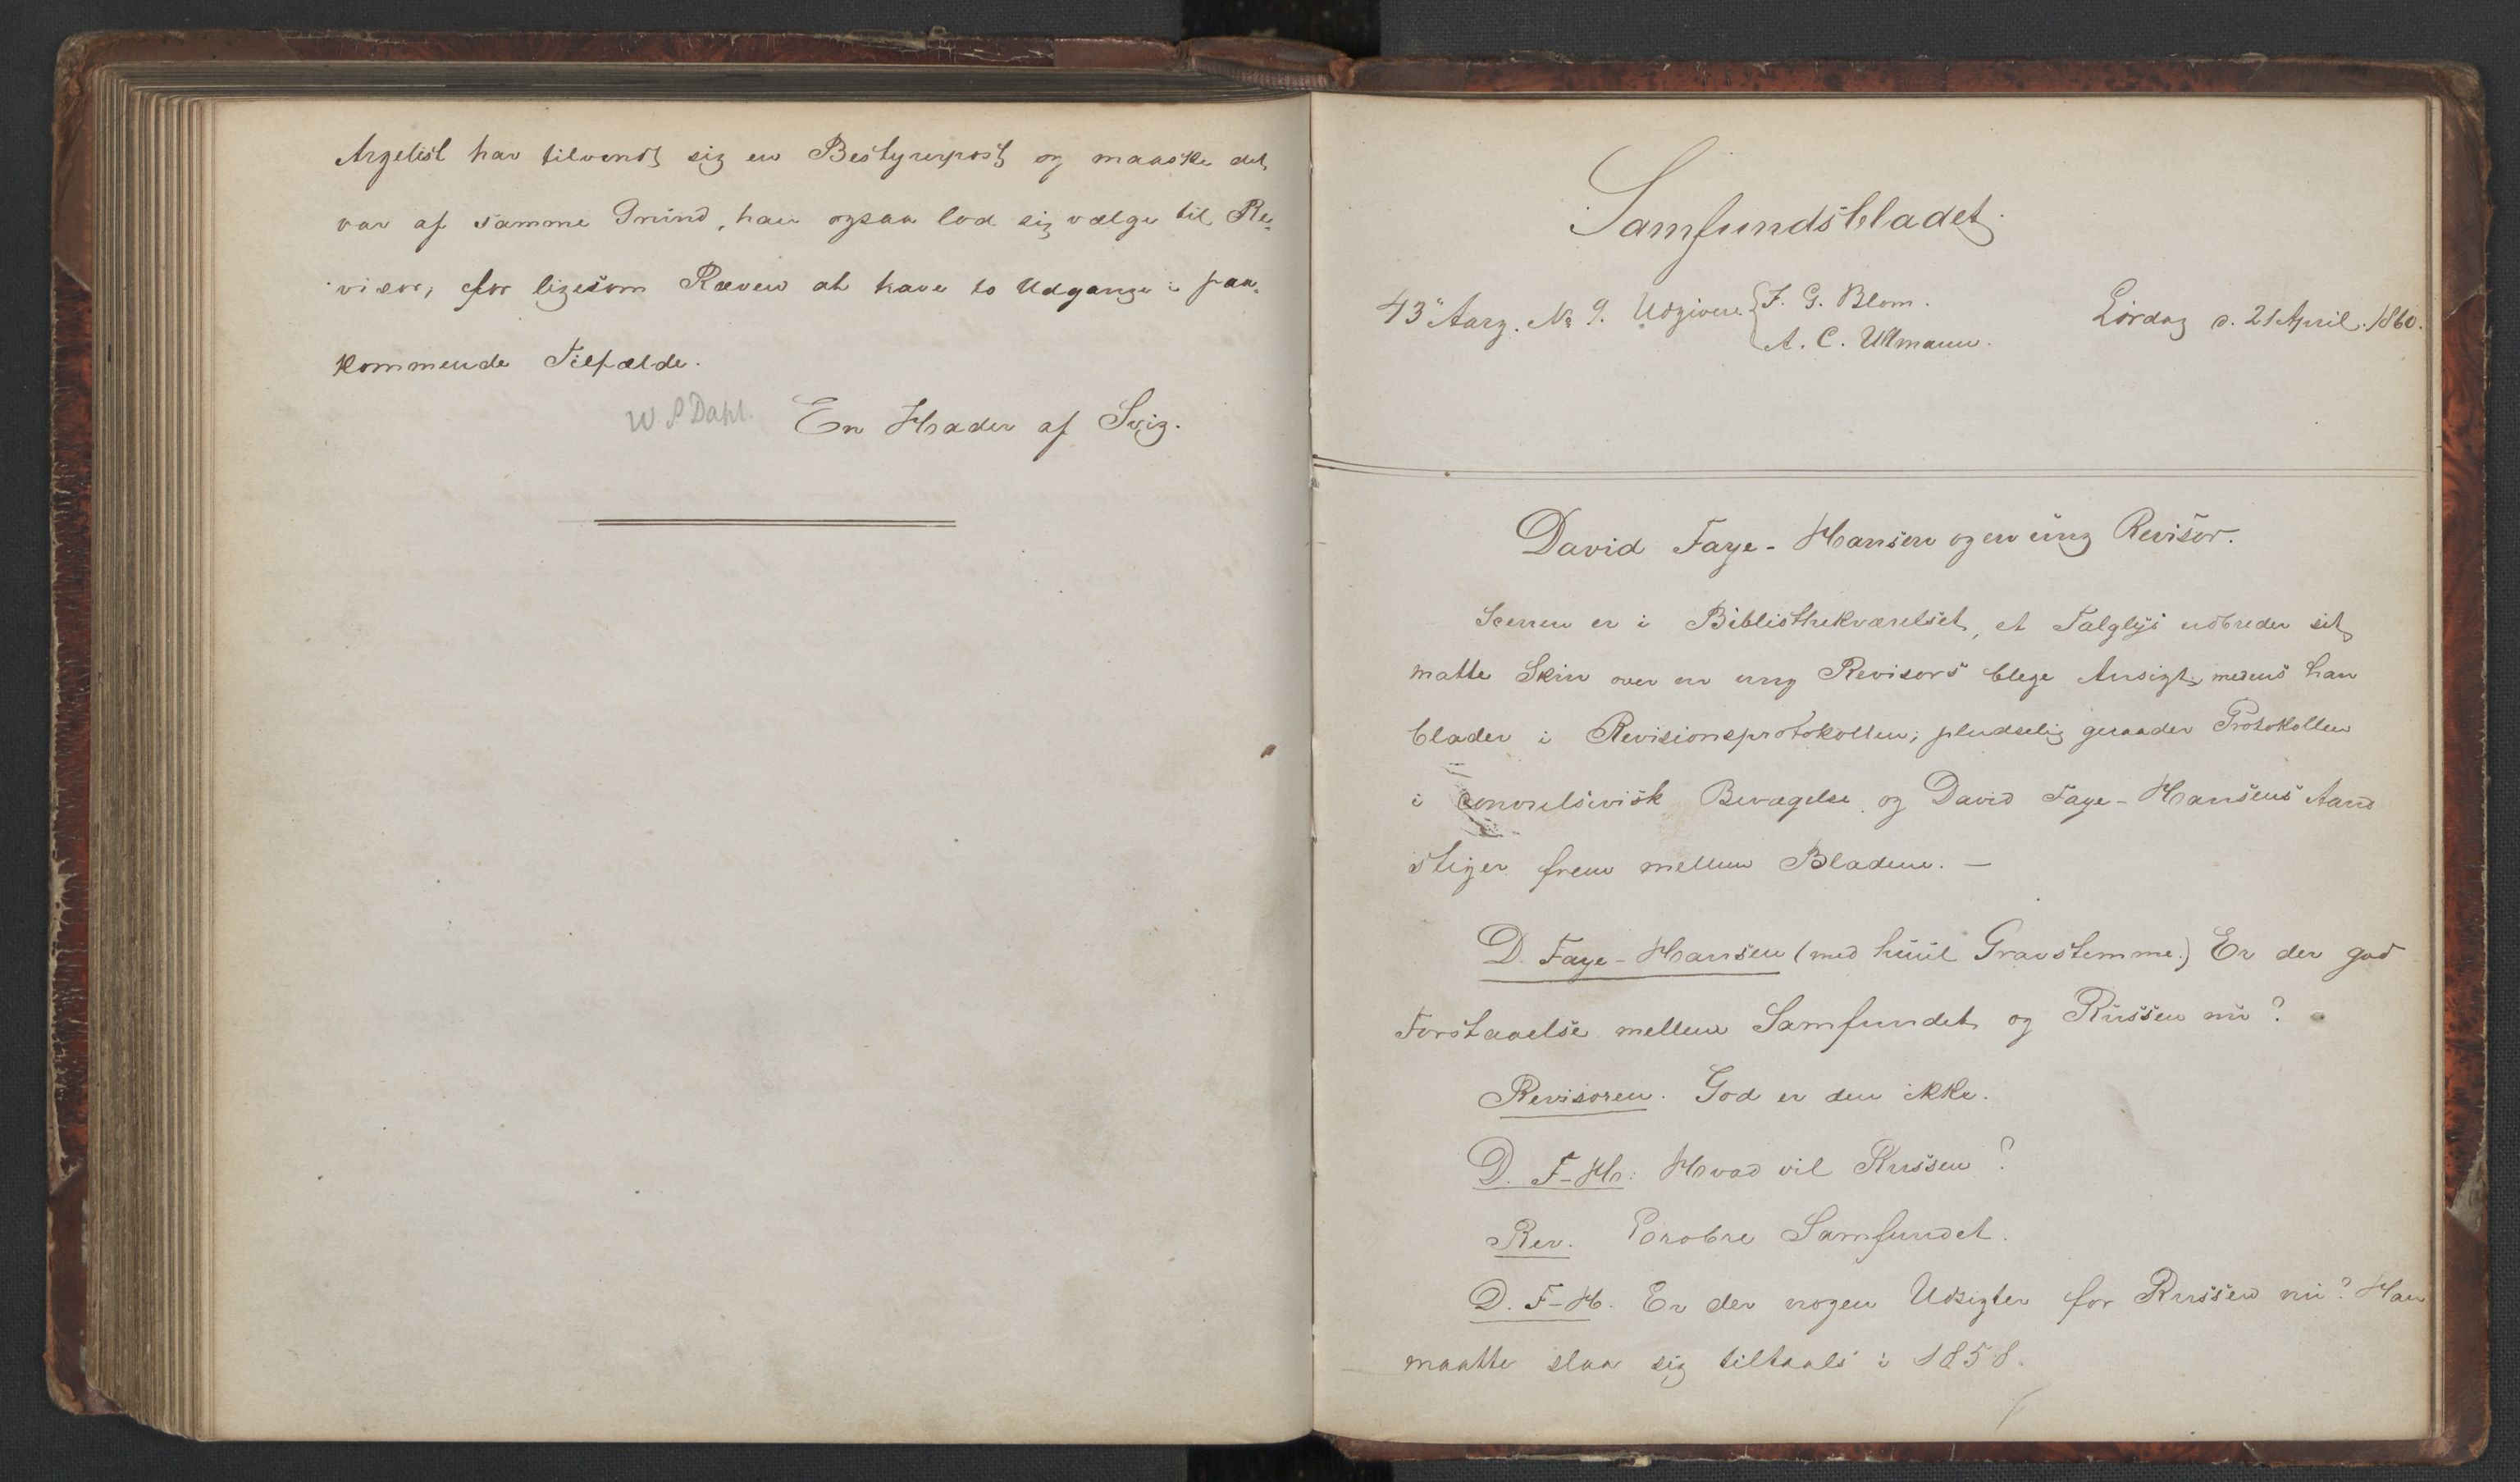 Argelist har tilvendt sig en Bestyrerpost og maaske det
var af samme Grund, han ogsaa lod sig vælge til Re-
visor, for ligesom Ræven at have to Udgange i paa-
kommende Tilfælde.
W. P Dahl. En Hader af Svig.
Samfundsbladet.
43de Aarg. No 9. Udgivere { F. G. Blom.
A. C. Ullmann.
Lørdag d. 21 April. 1860.
David Faye-Hansen og en ung Revisor.
Scenen er i Bibliothekværelset, et Talglys udbreder sit
matte Skin over en ung Revisors blege Ansigt, mens han
blader i Revisionsprotokollen; pludselig geraader Protokollen
i convulsivisk Bevægelse og David Faye-Hansens Aand
stiger frem mellem Bladene. —
D. Faye-Hansen (med huul Gravstemme.) Er der god
Forstaaelse mellem Samfundet og Russen nu?
Revisoren. God er den ikke.
D. F-H.: Hvad vil Russen?
Rev. Erobre Samfundet.
D. F-H. Er der nogen Udsigter for Russen nu? Han
maatte slaa sig tiltaals i 1858.